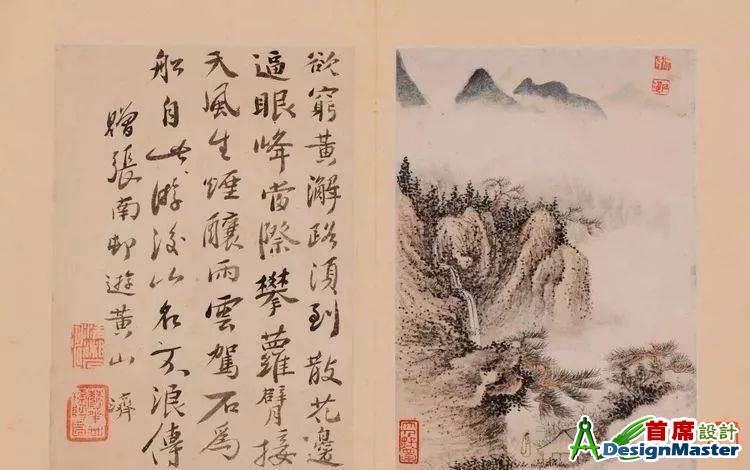 欲窮黃澥路須到散花邊
逼眼峰當際攀蘿臂接
天風生煙釀雨雲駕石為
船自此游後山名不浪傳
贈張南邨遊黃山 濟
首席設計
ADesignMaster